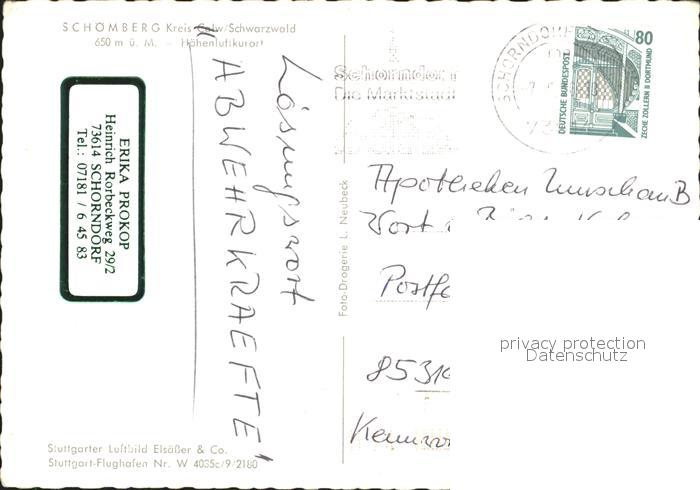 SCHÖMBERG Kreis Calw/Schwarzwald
650 m ü. M. - Höhenluftkurort
ERIKA PROKOP
Heinrich Rorbeckweg 29/2
73614 SCHORNDORF
Tel.: 07181 / 6 45 83
Lösungswort
"ABWEHRKRAEFTE"
Stuttgarter Luftbild Elsäßer & Co.
Stuttgart-Flughafen Nr. W 4035c/9/2180
Foto-Drogerie L. Neubeck
Schorndorf
Die Marktstadt
SCHORNDORF
80
DEUTSCHE BUNDESPOST
ZECHE ZOLLERN II DORTMUND
Apotheken Umschau B
Wort
Postf
8531
Kennwo
privacy protection
Datenschutz